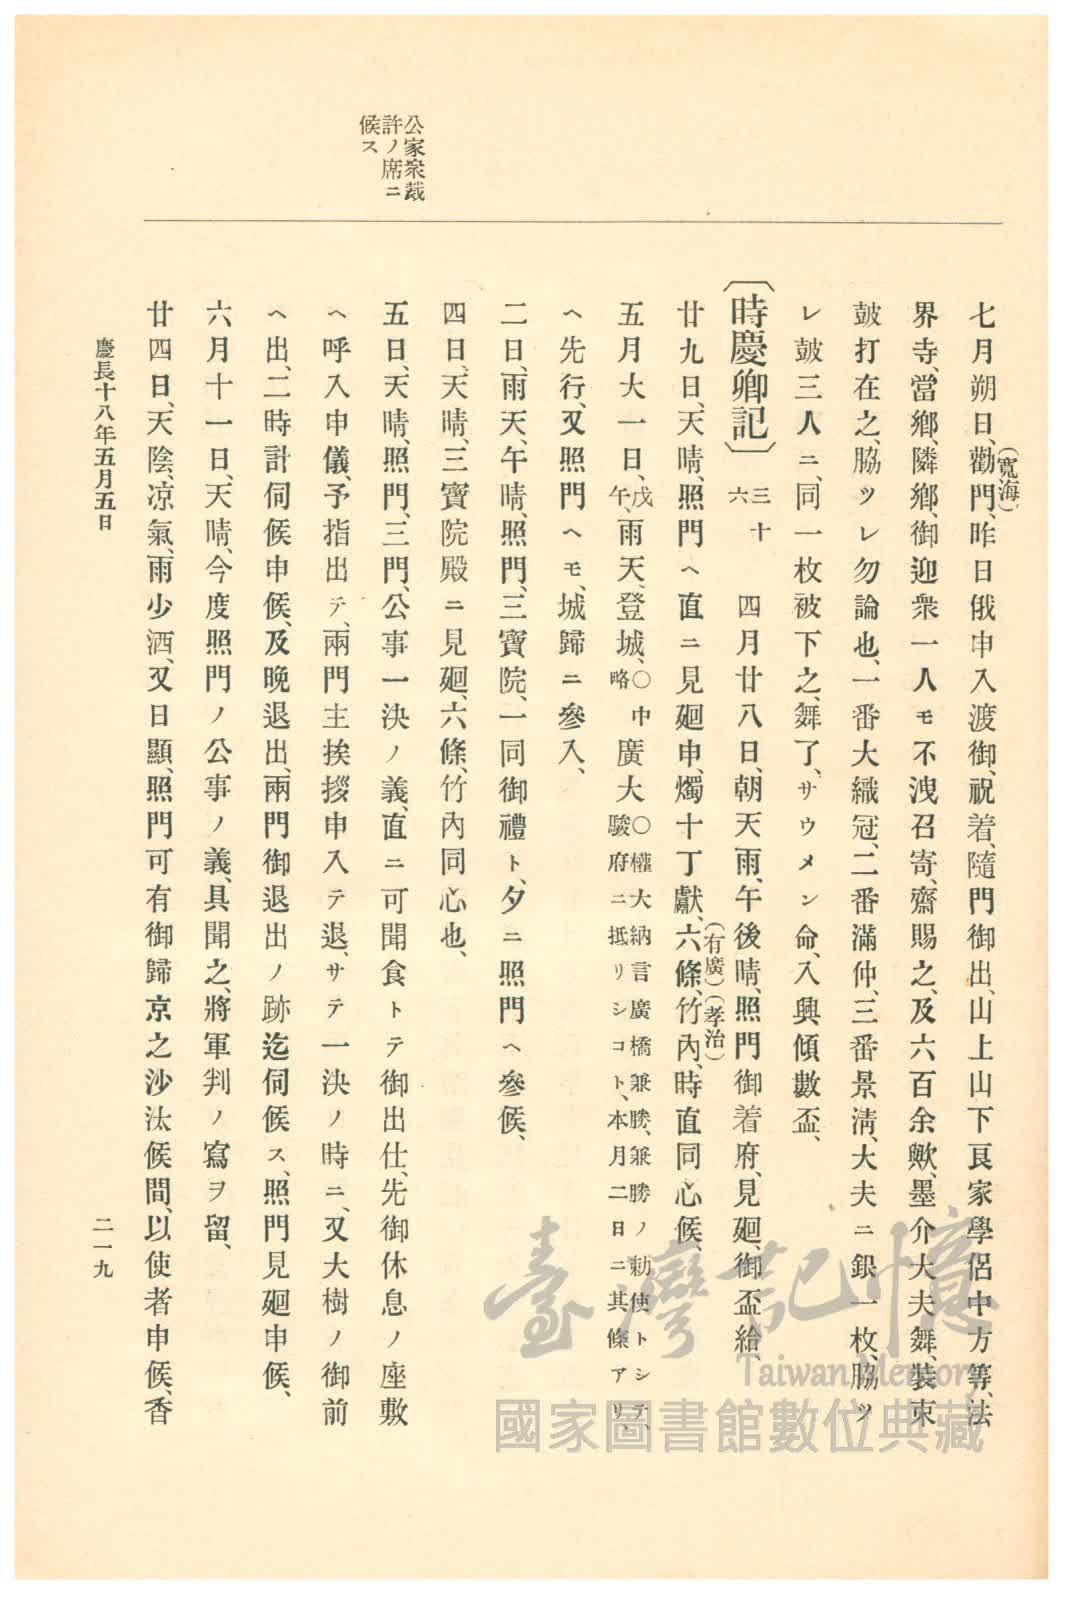 公家衆裁
許ノ席ニ
候ス
七月朔日、勸(寛海)門、昨日俄申入渡御、祝着、隨門御出、山上山下良家學侶中方等、法
界寺、當鄉、隣鄉、御迎衆一人モ不洩召寄、齋賜之、及六百余歟、墨介大夫舞、裝束
鼓打在之、脇ツレ勿論也、一番大織冠、二番滿仲、三番景淸、大夫ニ銀一枚、脇ツ
レ鼓三人ニ、同一枚被下之、舞了、サウメン命、入興傾數盃、
〔時慶卿記〕 三十六 四月廿八日、朝天雨、午後晴、照門御着府、見廻、御盃給、
廿九日、天晴、照門へ直ニ見廻申、燭十丁獻、六條(有廣)、竹內(孝治)、時直同心候、
五月大一日、戊午、雨天、登城、〇中略廣大〇權大納言廣橋兼勝、兼勝ノ勅使トシテ、駿府ニ抵リシコト、本月二日ニ其條アリ、
へ先行、又照門へモ、城歸ニ參入、
二日、雨天、午晴、照門、三寶院、一同御禮ト、夕ニ照門へ參候、
四日、天晴、三寶院殿ニ見廻、六條、竹內同心也、
五日、天晴、照門、三門、公事一決ノ義、直ニ可聞食トテ御出仕、先御休息ノ座敷
へ呼入申儀、予指出テ、兩門主挨拶申入テ退、サテ一決ノ時ニ、又大樹ノ御前
へ出、二時計伺候申候、及晚退出、兩門御退出ノ跡迄伺候ス、照門見廻申候、
六月十一日、天晴、今度照門ノ公事ノ義、具聞之、將軍判ノ寫ヲ留、
廿四日、天陰、凉氣、雨少洒、又日顯、照門可有御歸京之沙汰候間、以使者申候、香
慶長十八年五月五日
二一九
臺灣記憶
Taiwan Memory
國家圖書館數位典藏